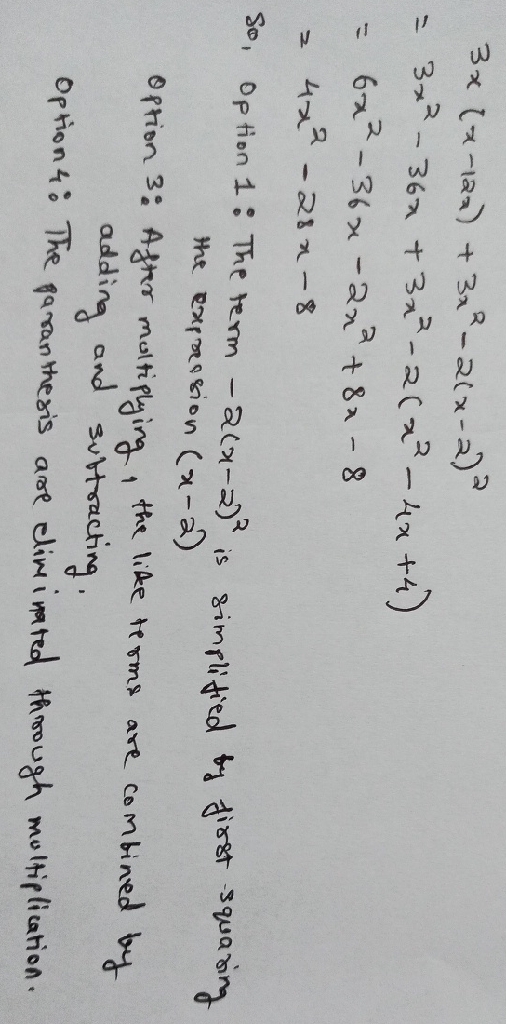 3x (x-12x) + 3x² - 2(x-2)²
= 3x² - 36x + 3x² - 2(x² - 4x + 4)
= 6x² - 36x - 2x² + 8x - 8
= 4x² - 28x - 8
So, Option 1: The term -2(x-2)² is simplified by first squaring
the expression (x-2)
Option 3: After multiplying, the like terms are combined by
adding and subtracting.
Option 4: The paranthesis are eliminated through multiplication.